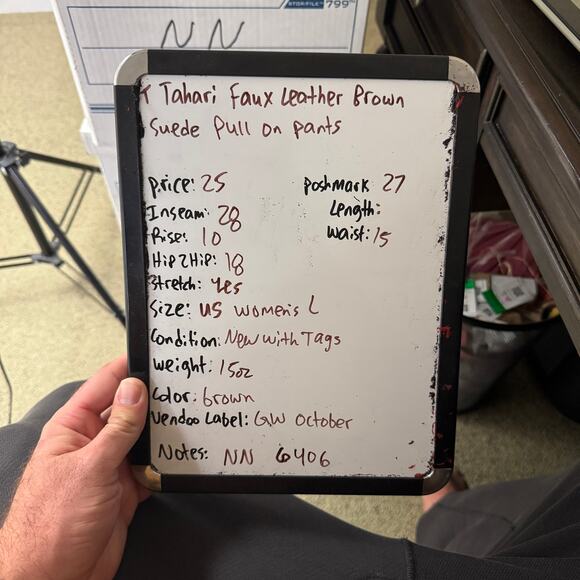 STOR/FILE™ 799
NN
T Tahari Faux Leather Brown
Suede Pull on pants
price: 25
Poshmark 27
Inseam: 28
Length:
Rise: 10
Waist: 15
Hip2Hip: 18
Stretch: Yes
Size: US Women's L
Condition: New with Tags
weight: 15oz
Color: brown
Vendoo Label: GW October
Notes: NN 6406